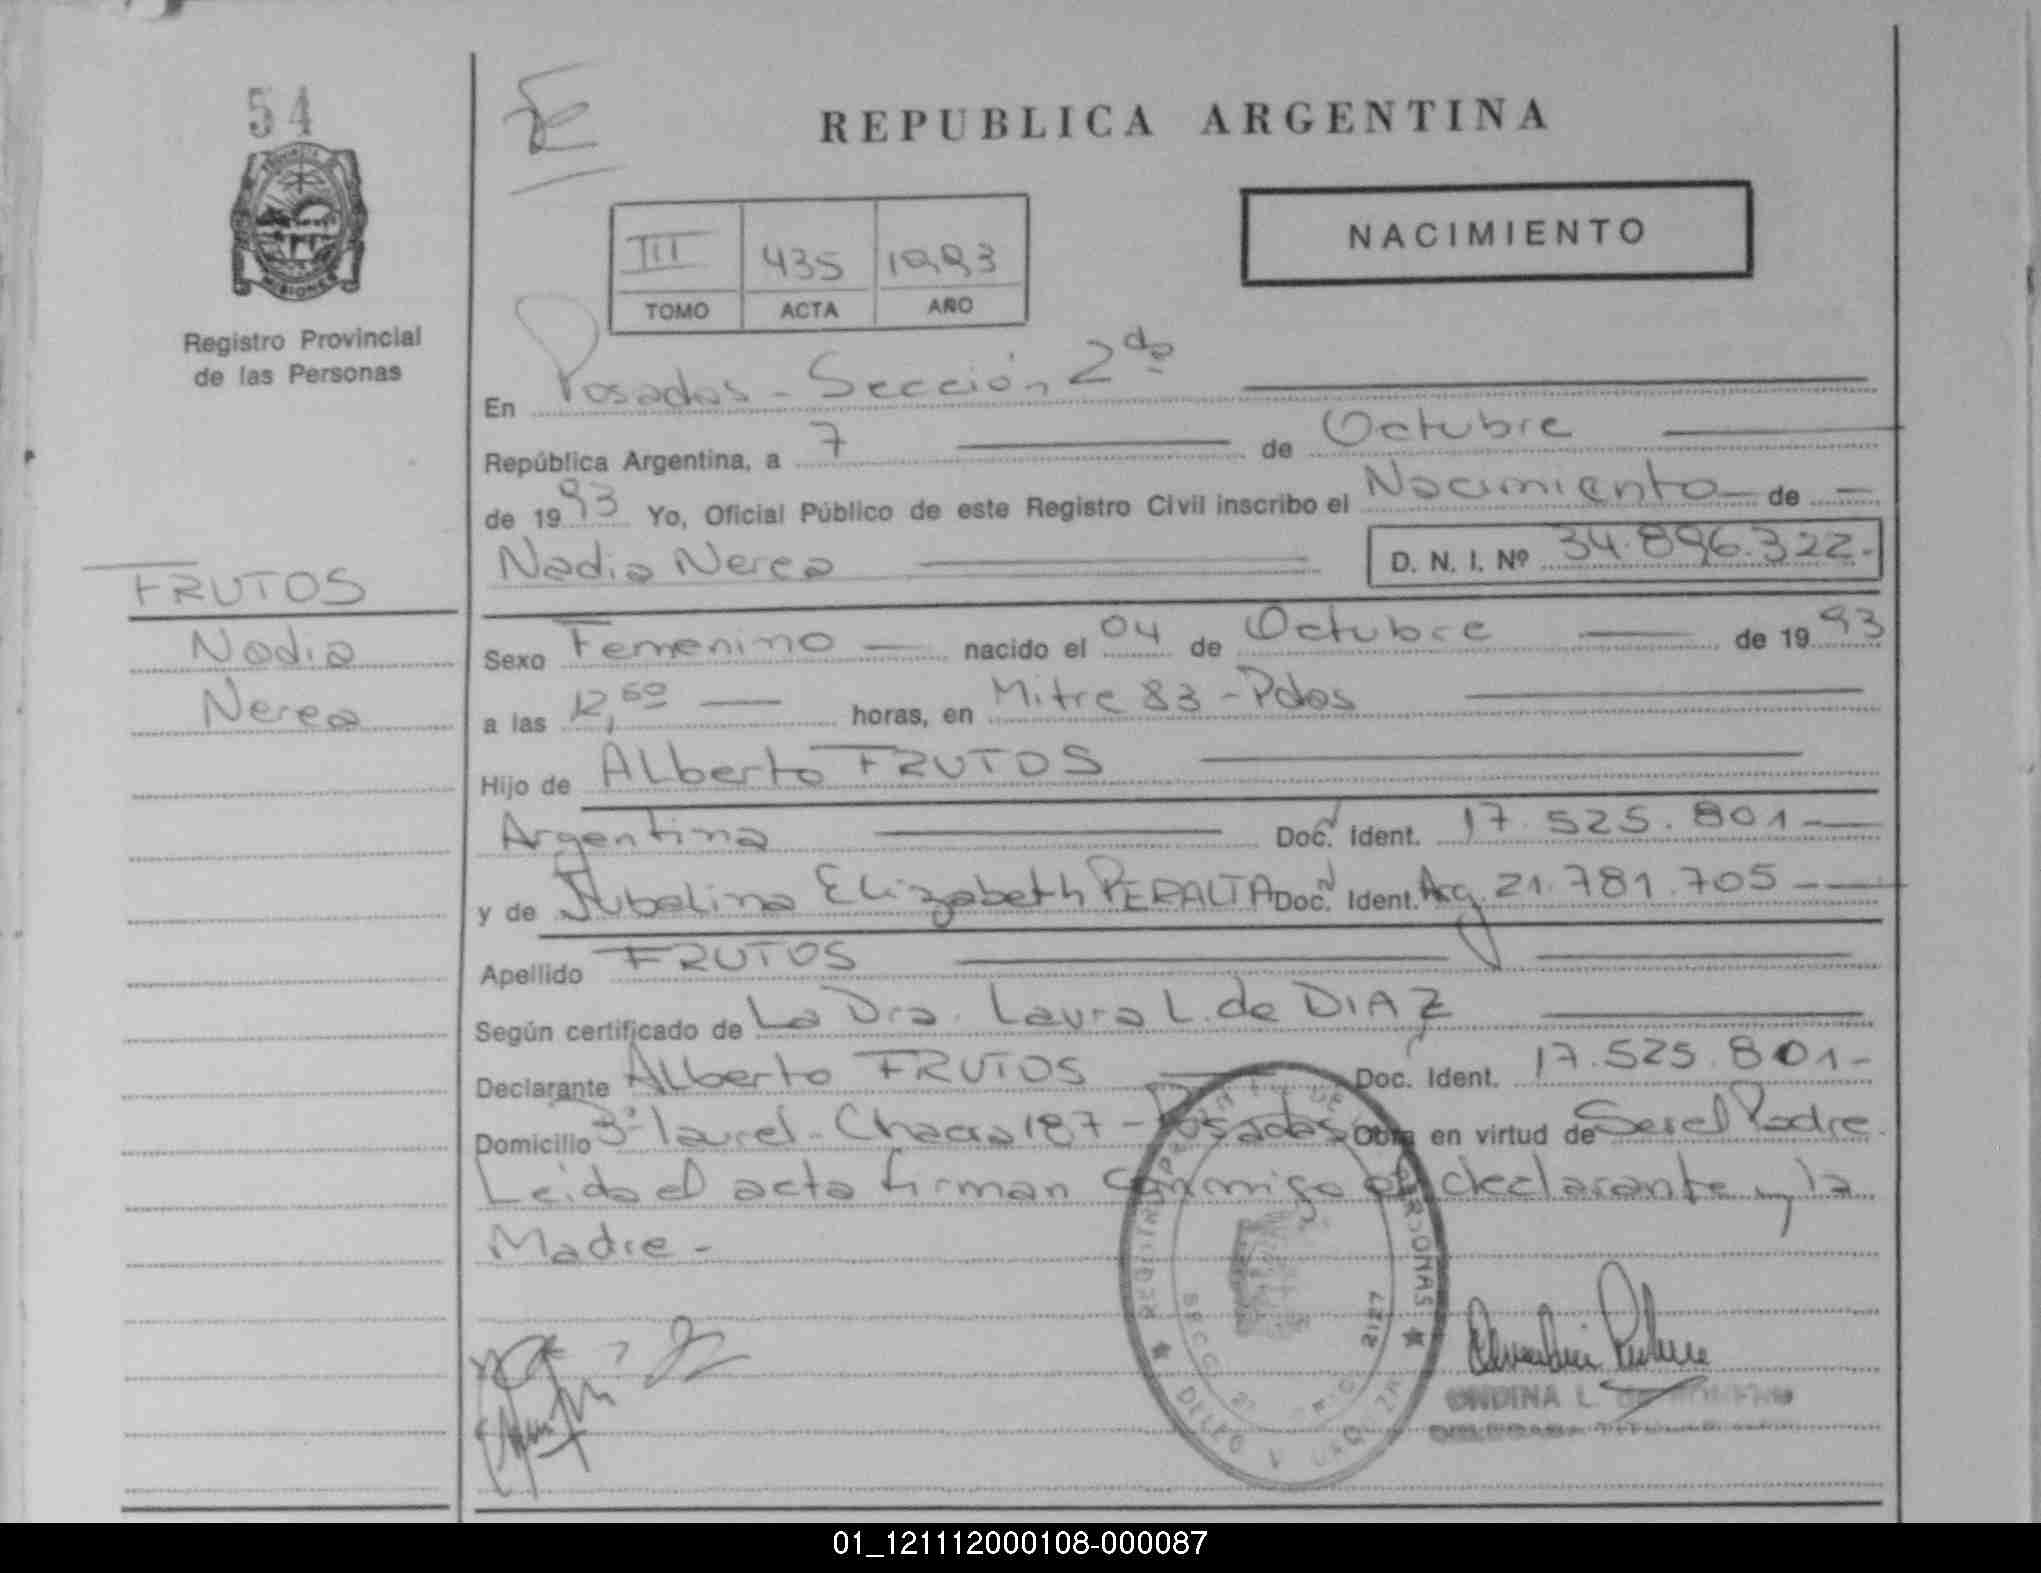 54
PROVINCIA
MISIONES
Registro Provincial
de las Personas
REPUBLICA ARGENTINA
III 435 1993
TOMO ACTA AÑO
NACIMIENTO
En Posadas - Sección 2da
República Argentina, a 7 de Octubre
de 1993 Yo, Oficial Público de este Registro Civil inscribo el Nacimiento de
Nadia Nerea D. N. I. Nº 34.896.322.-
FRUTOS
Nadia
Nerea
Sexo Femenino nacido el 04 de Octubre de 1993
a las 12,50 horas, en Mitre 83 - Pdas
Hijo de Alberto FRUTOS
Argentina Doc. Ident. 17.525.801
y de Jubelina Elizabeth PERALTA Doc. Ident. Arg. 21.781.705
Apellido FRUTOS
Según certificado de La Dra. Laura L. de DIAZ
Declarante Alberto FRUTOS Doc. Ident. 17.525.801-
Domicilio 3º laurel - Chacra 187 - Posadas Obra en virtud de Ser el Padre.
Leida el acta firman conmigo el declarante y la
Madre -
PERSONAS
2127
ONDINA L.
01_121112000108-000087